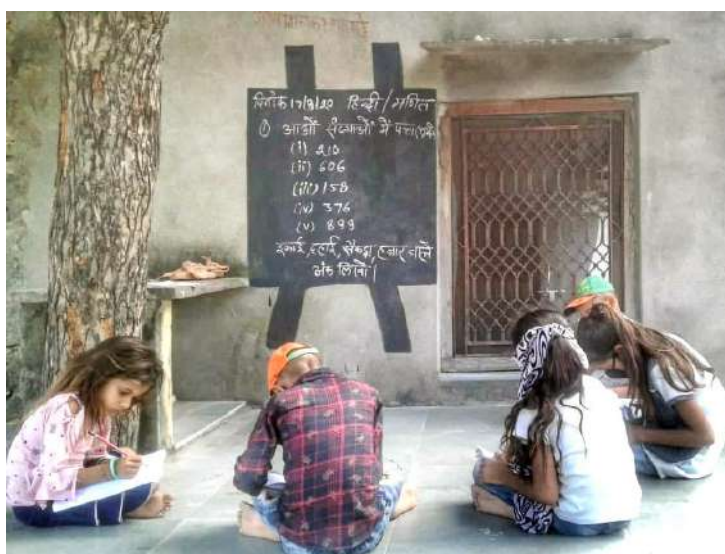 दिनांक 17/3/22 हिन्दी/गणित
① आओं संख्याओं में पता
(i) 210
(ii) 606
(iii) 158
(iv) 376
(v) 899
इकाई, दहाई, सैकड़ा, हजार वाले
अंक लिखो।